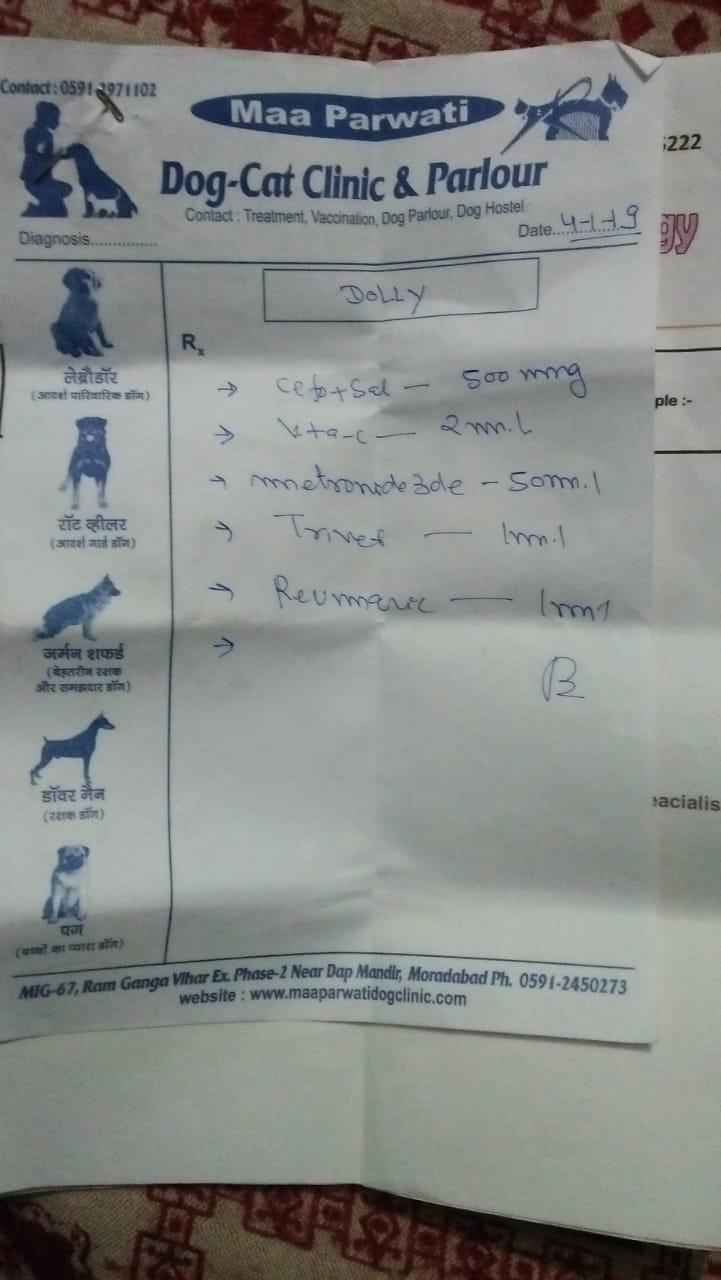 Contact : 0591-2971102
Maa Parwati
Dog-Cat Clinic & Parlour
Contact : Treatment, Vaccination, Dog Parlour, Dog Hostel
Diagnosis...............
Date.....4-1-19
DOLLY
Rx
लेब्रौडॉर
(आदर्श पारिवारिक डॉग)
रॉट व्हीलर
(आदर्श गार्ड डॉग)
जर्मन शफर्ड
(बेहतरीन रक्षक
और समझदार डॉग)
डॉवर मैन
(रक्षक डॉग)
पग
(बच्चों का प्यारा डॉग)
→ — 500 mg
→ Vita-c — 2 m.l
→ metronide3de - 50m.l
→ Trivet — 1m.l
→ — 1ml
→
MIG-67, Ram Ganga Vihar Ex. Phase-2 Near Dap Mandir, Moradabad Ph. 0591-2450273
website : www.maaparwatidogclinic.com
5222
gy
ple :-
eacialis